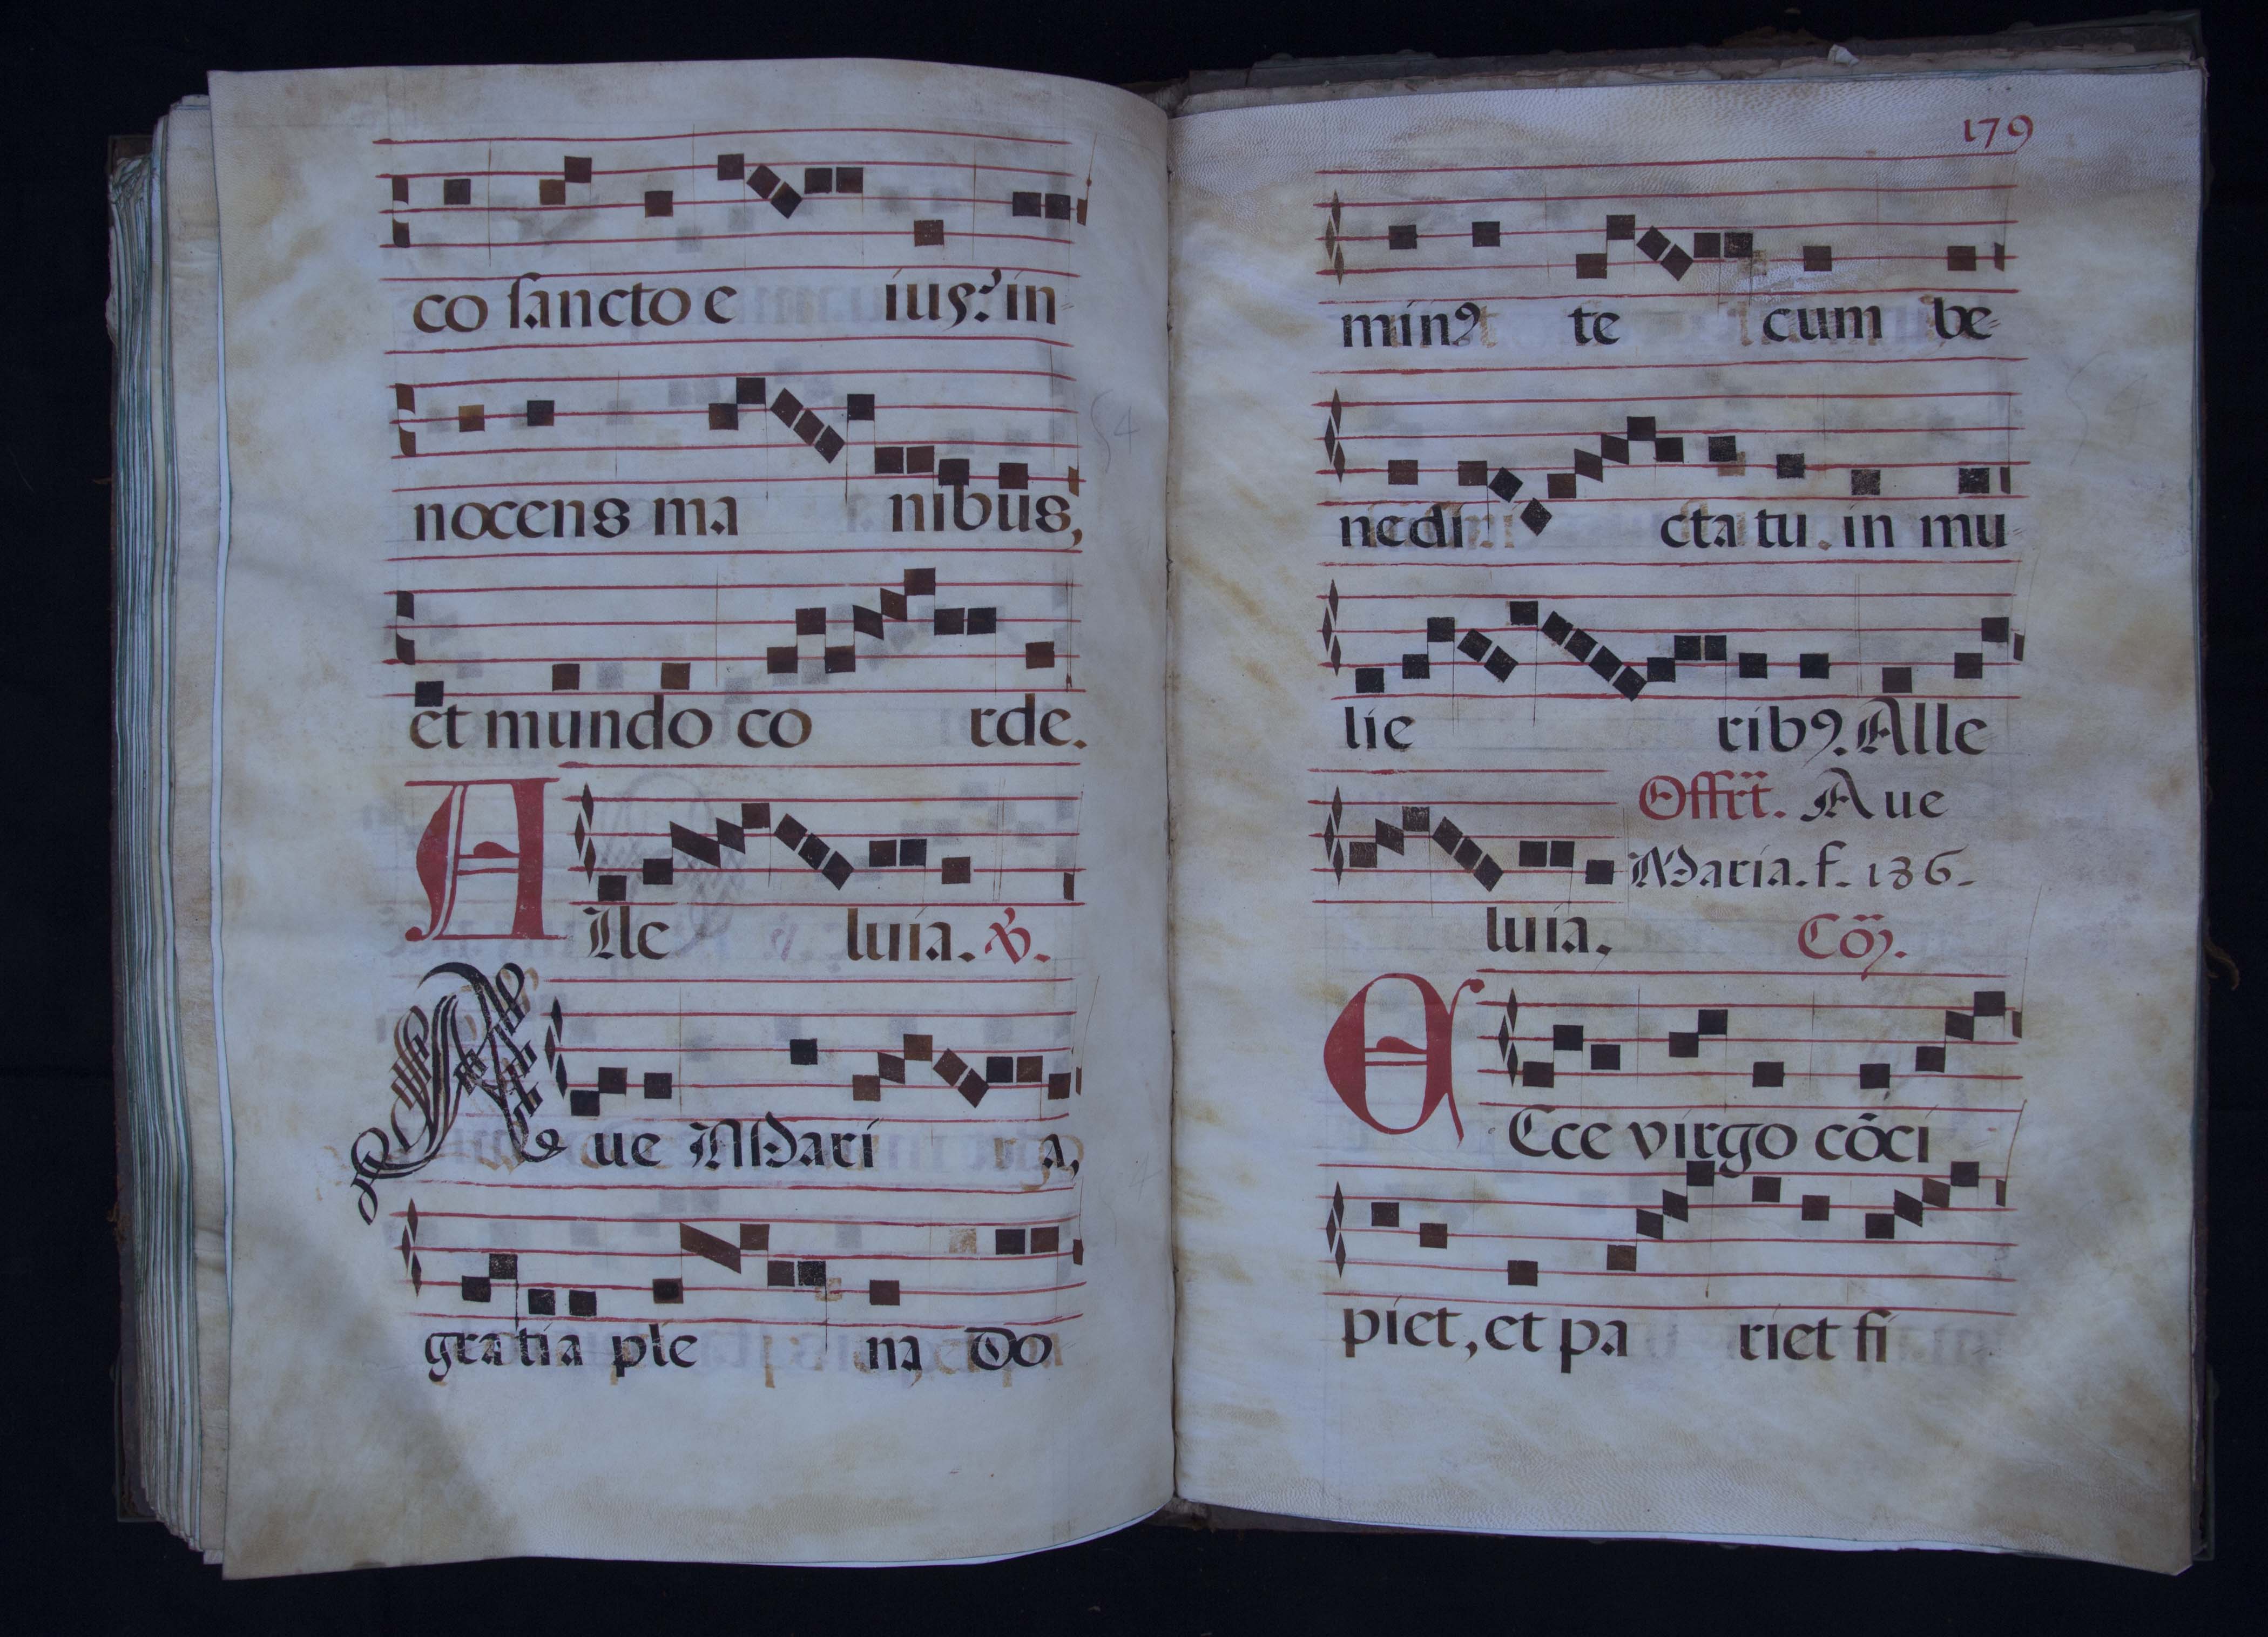 co sancto e ius? in-
nocens ma nibus,
et mundo co rde.
Alle luia. ℣.
Aue Mari a,
gratia ple na Do
179
min9 te cum be-
nedi cta tu. in mu-
lie rib9. Alle
Offrt. Aue
Maria. f. 186.
luia. Cõ.
Ecce virgo cõci
piet, et pa riet fi